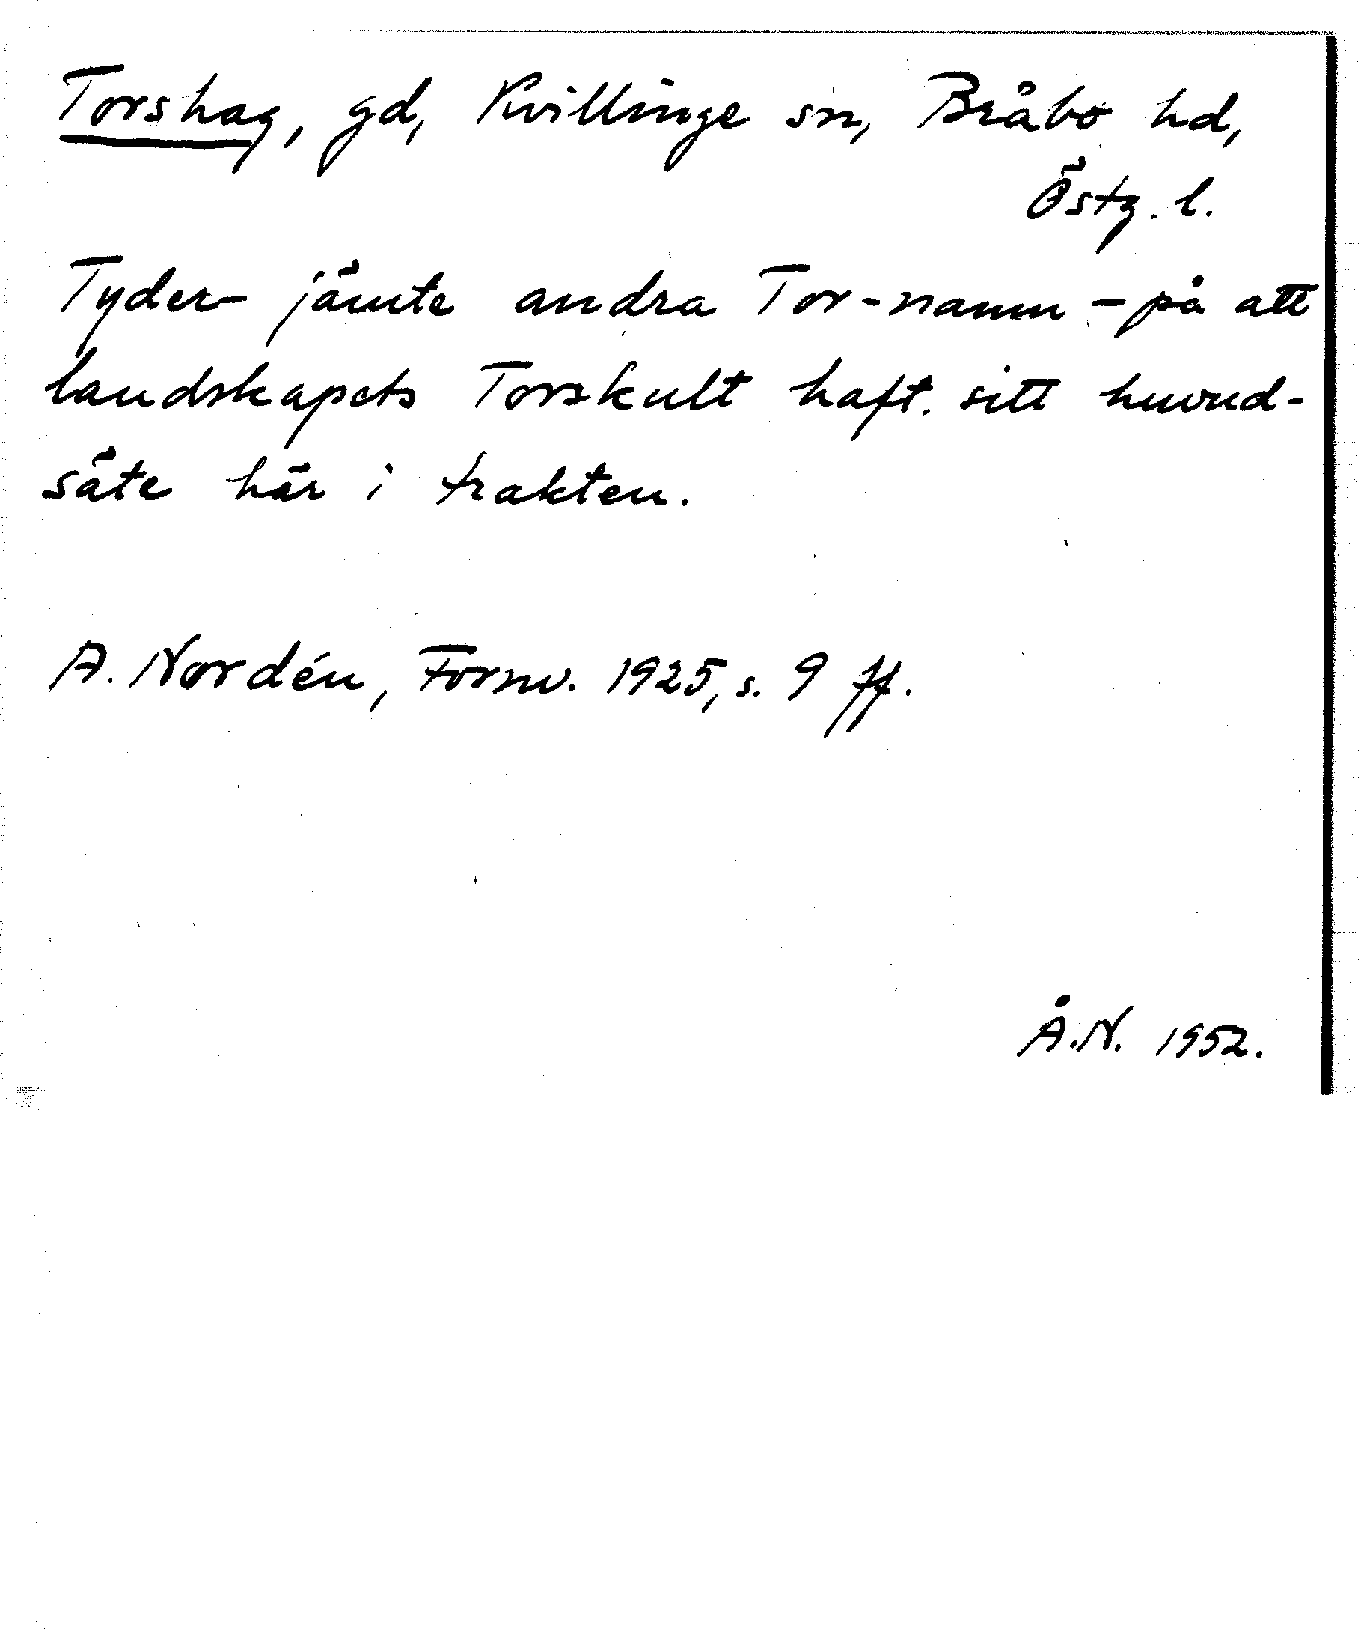 Torshag, gd, Kvillinge sn, Bråbo hd,
Östg. l.
Tyder – jämte andra Tor-namn – på att
landskapets Torskult haft sitt huvud-
säte här i trakten.
A. Nordén, Fornv. 1925, s. 9 ff.
Å.N. 1952.